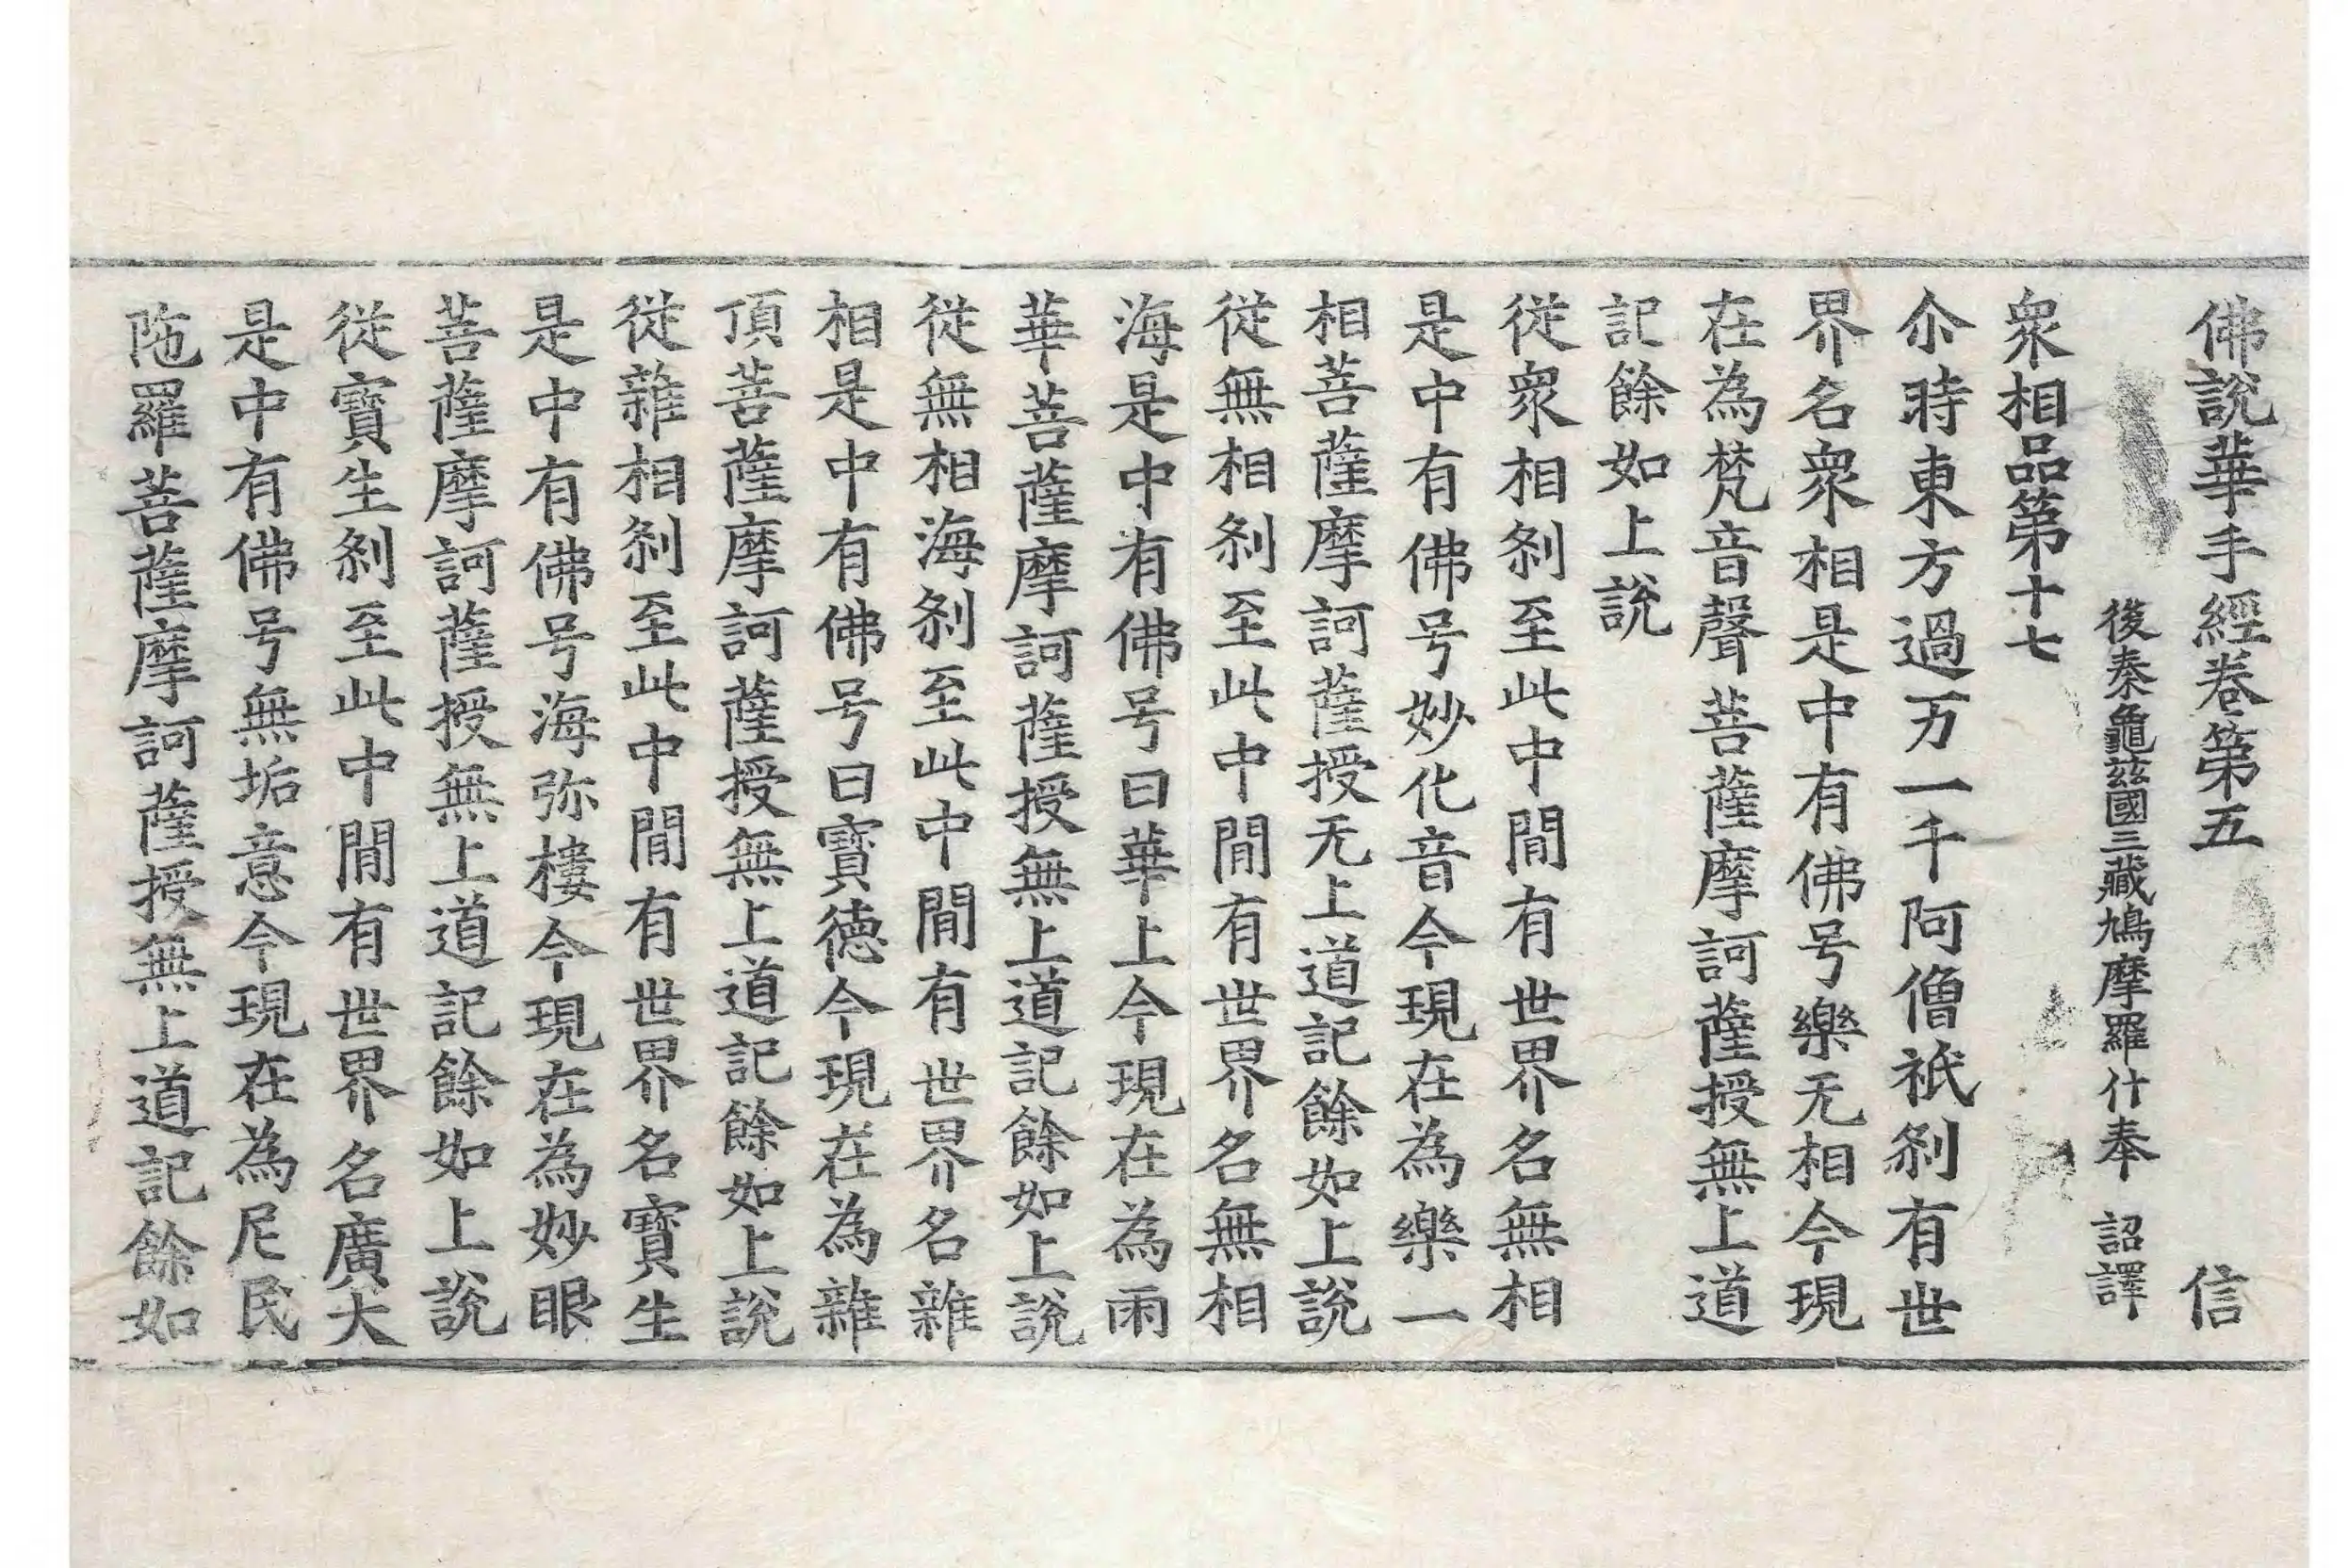 佛說華手經卷第五 信
後秦龜茲國三藏鳩摩羅什奉 詔譯
衆相品第十七
尒時東方過万一千阿僧祇剎有世
界名衆相是中有佛号樂无相今現
在為梵音聲菩薩摩訶薩授無上道
記餘如上說
從衆相剎至此中閒有世界名無相
是中有佛号妙化音今現在為樂一
相菩薩摩訶薩授无上道記餘如上說
從無相剎至此中閒有世界名無相
海是中有佛号曰華上今現在為雨
華菩薩摩訶薩授無上道記餘如上說
從無相海剎至此中閒有世界名雜
相是中有佛号曰寶德今現在為雜
頂菩薩摩訶薩授無上道記餘如上說
從雜相剎至此中閒有世界名寶生
是中有佛号海弥樓今現在為妙眼
菩薩摩訶薩授無上道記餘如上說
從寶生剎至此中閒有世界名廣大
是中有佛号無垢意今現在為尼民
陁羅菩薩摩訶薩授無上道記餘如